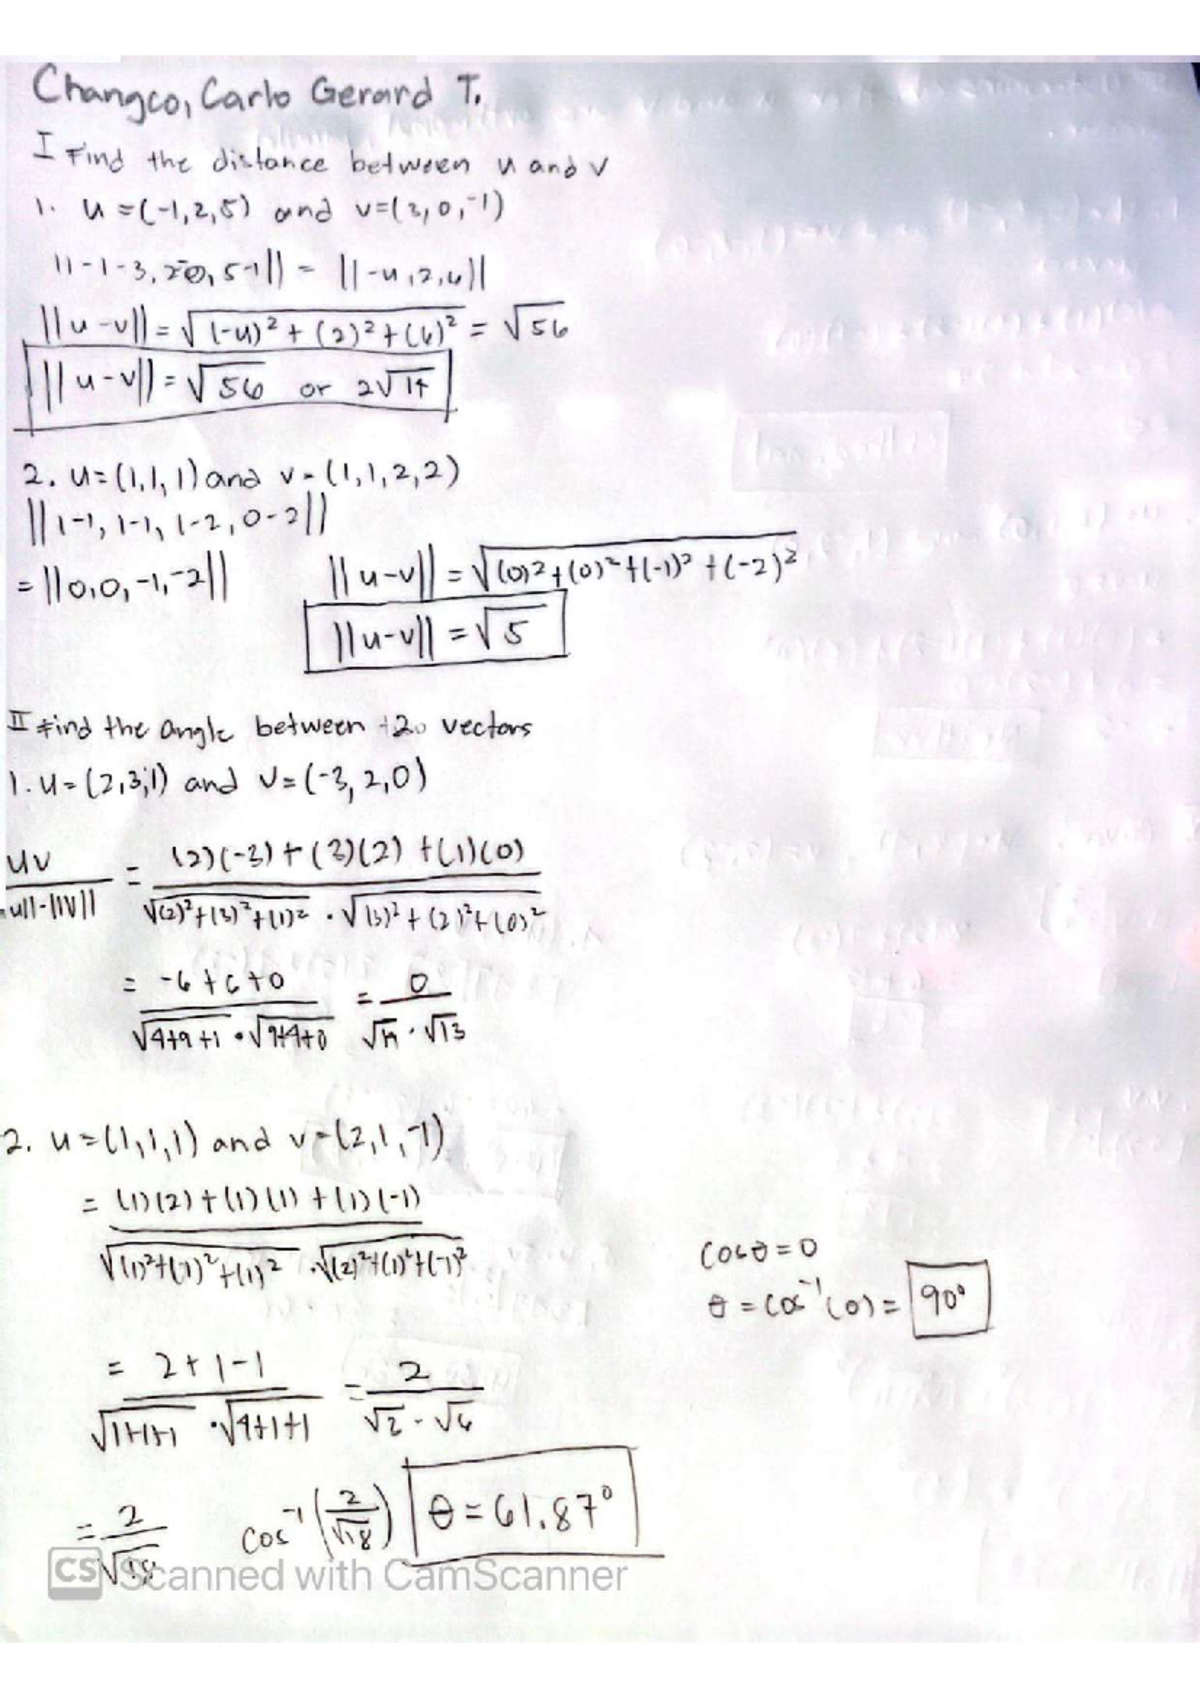 Changco, Carlo Gerard T.
I Find the distance between u and v
1. u = (-1,2,5) and v=(3,0,-1)
||-1-3, 2-0, 5-1|| = ||-4,2,6||
||u-v|| = √(-4)² + (2)² + (6)² = √56
||u-v|| = √56 or 2√14
2. u=(1,1,1) and v=(1,1,2,2)
||1-1, 1-1, 1-2, 0-2||
= ||0,0,-1,-2|| ||u-v|| = √(0)²+(0)²+(-1)²+(-2)²
||u-v|| = √5
II Find the angle between vectors
1. u=(2,3,1) and v=(-3,2,0)
uv / u||·||v|| = (2)(-3)+(3)(2)+(1)(0) / √(2)²+(3)²+(1)² · √(3)²+(2)²+(0)²
= -6+6+0 / √4+9+1 · √9+4+0 = 0 / √14 · √13
2. u=(1,1,1) and v=(2,1,-1)
= (1)(2)+(1)(1)+(1)(-1) / √(1)²+(1)²+(1)² · √(2)²+(1)²+(-1)²
cos θ = 0
θ = cos⁻¹(0) = 90°
= 2+1-1 / √1+1+1 · √4+1+1 = 2 / √ · √6
= 2 / √18 cos⁻¹(2/√18) θ = 61.87°
CS Scanned with CamScanner